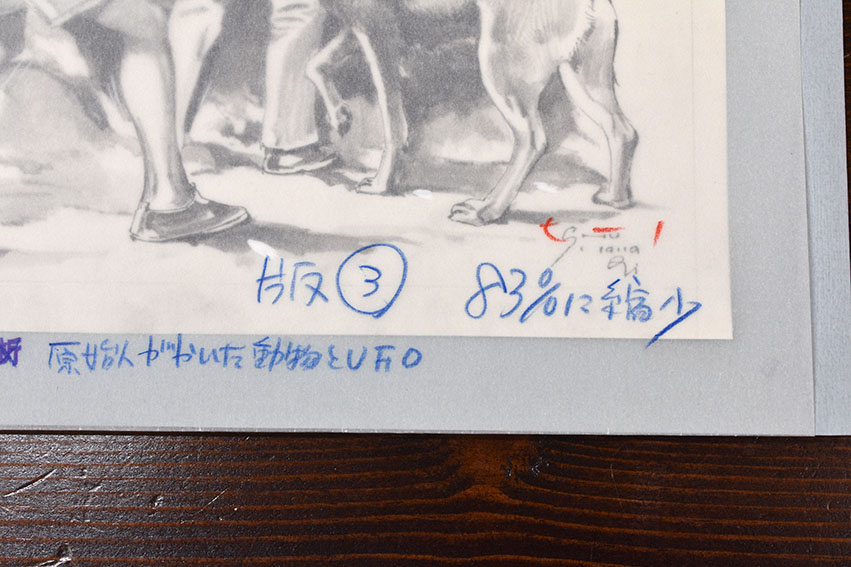 版③ 83%に縮少
原始人がかいた動物とUFO